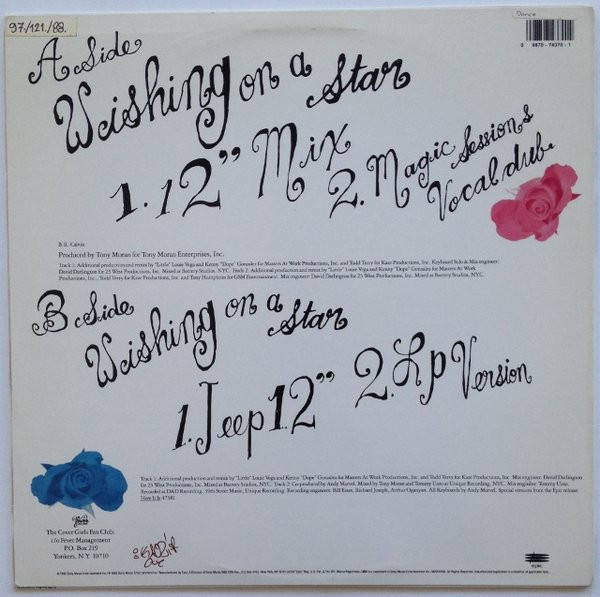 97./121./88.
Dance
0 9870-74370-1
A Side
Wishing on a Star
1. 12" Mix
2. Magic Sessions
Vocal dub.
B.R. Calvin
Produced by Tony Moran for Tony Moran Enterprises, Inc.
Track 1: Additional production and remix by "Little" Louie Vega and Kenny "Dope" Gonzales for Masters At Work Productions, Inc. and Todd Terry for Kase Productions, Inc. Keyboard Solo & Mix engineer:
David Darlington for 25 West Productions, Inc. Mixed at Battery Studios, NYC. Track 2: Additional production and remix by "Little" Louie Vega and Kenny "Dope" Gonzales for Masters At Work
Productions, Inc., Todd Terry for Kase Productions, Inc. and Tony Humphries for GSM Entertainment. Mix engineer: David Darlington for 25 West Productions, Inc. Mixed at Battery Studios, NYC.
B Side
Wishing on a Star
1. Jeep 12" 2. Lp Version
Track 1: Additional production and remix by "Little" Louie Vega and Kenny "Dope" Gonzales for Masters At Work Productions, Inc. and Todd Terry for Kase Productions, Inc. Mix engineer: David Darlington
for 25 West Productions, Inc. Mixed at Battery Studios, NYC. Track 2: Co-produced by Andy Marvel. Mixed by Tony Moran and Tommy Uzzo at Unique Recording, NYC. Mix engineer: Tommy Uzzo.
Recorded at D&D Recording, 39th Street Music, Unique Recording. Recording engineers: Bill Esses, Richard Joseph, Arthur Opeyton. All Keyboards by Andy Marvel. Special versions from the Epic release:
Here It Is 47381
The Cover Girls Fan Club
c/o Fever Management
P.O. Box 219
Yonkers, N.Y. 10710
epic